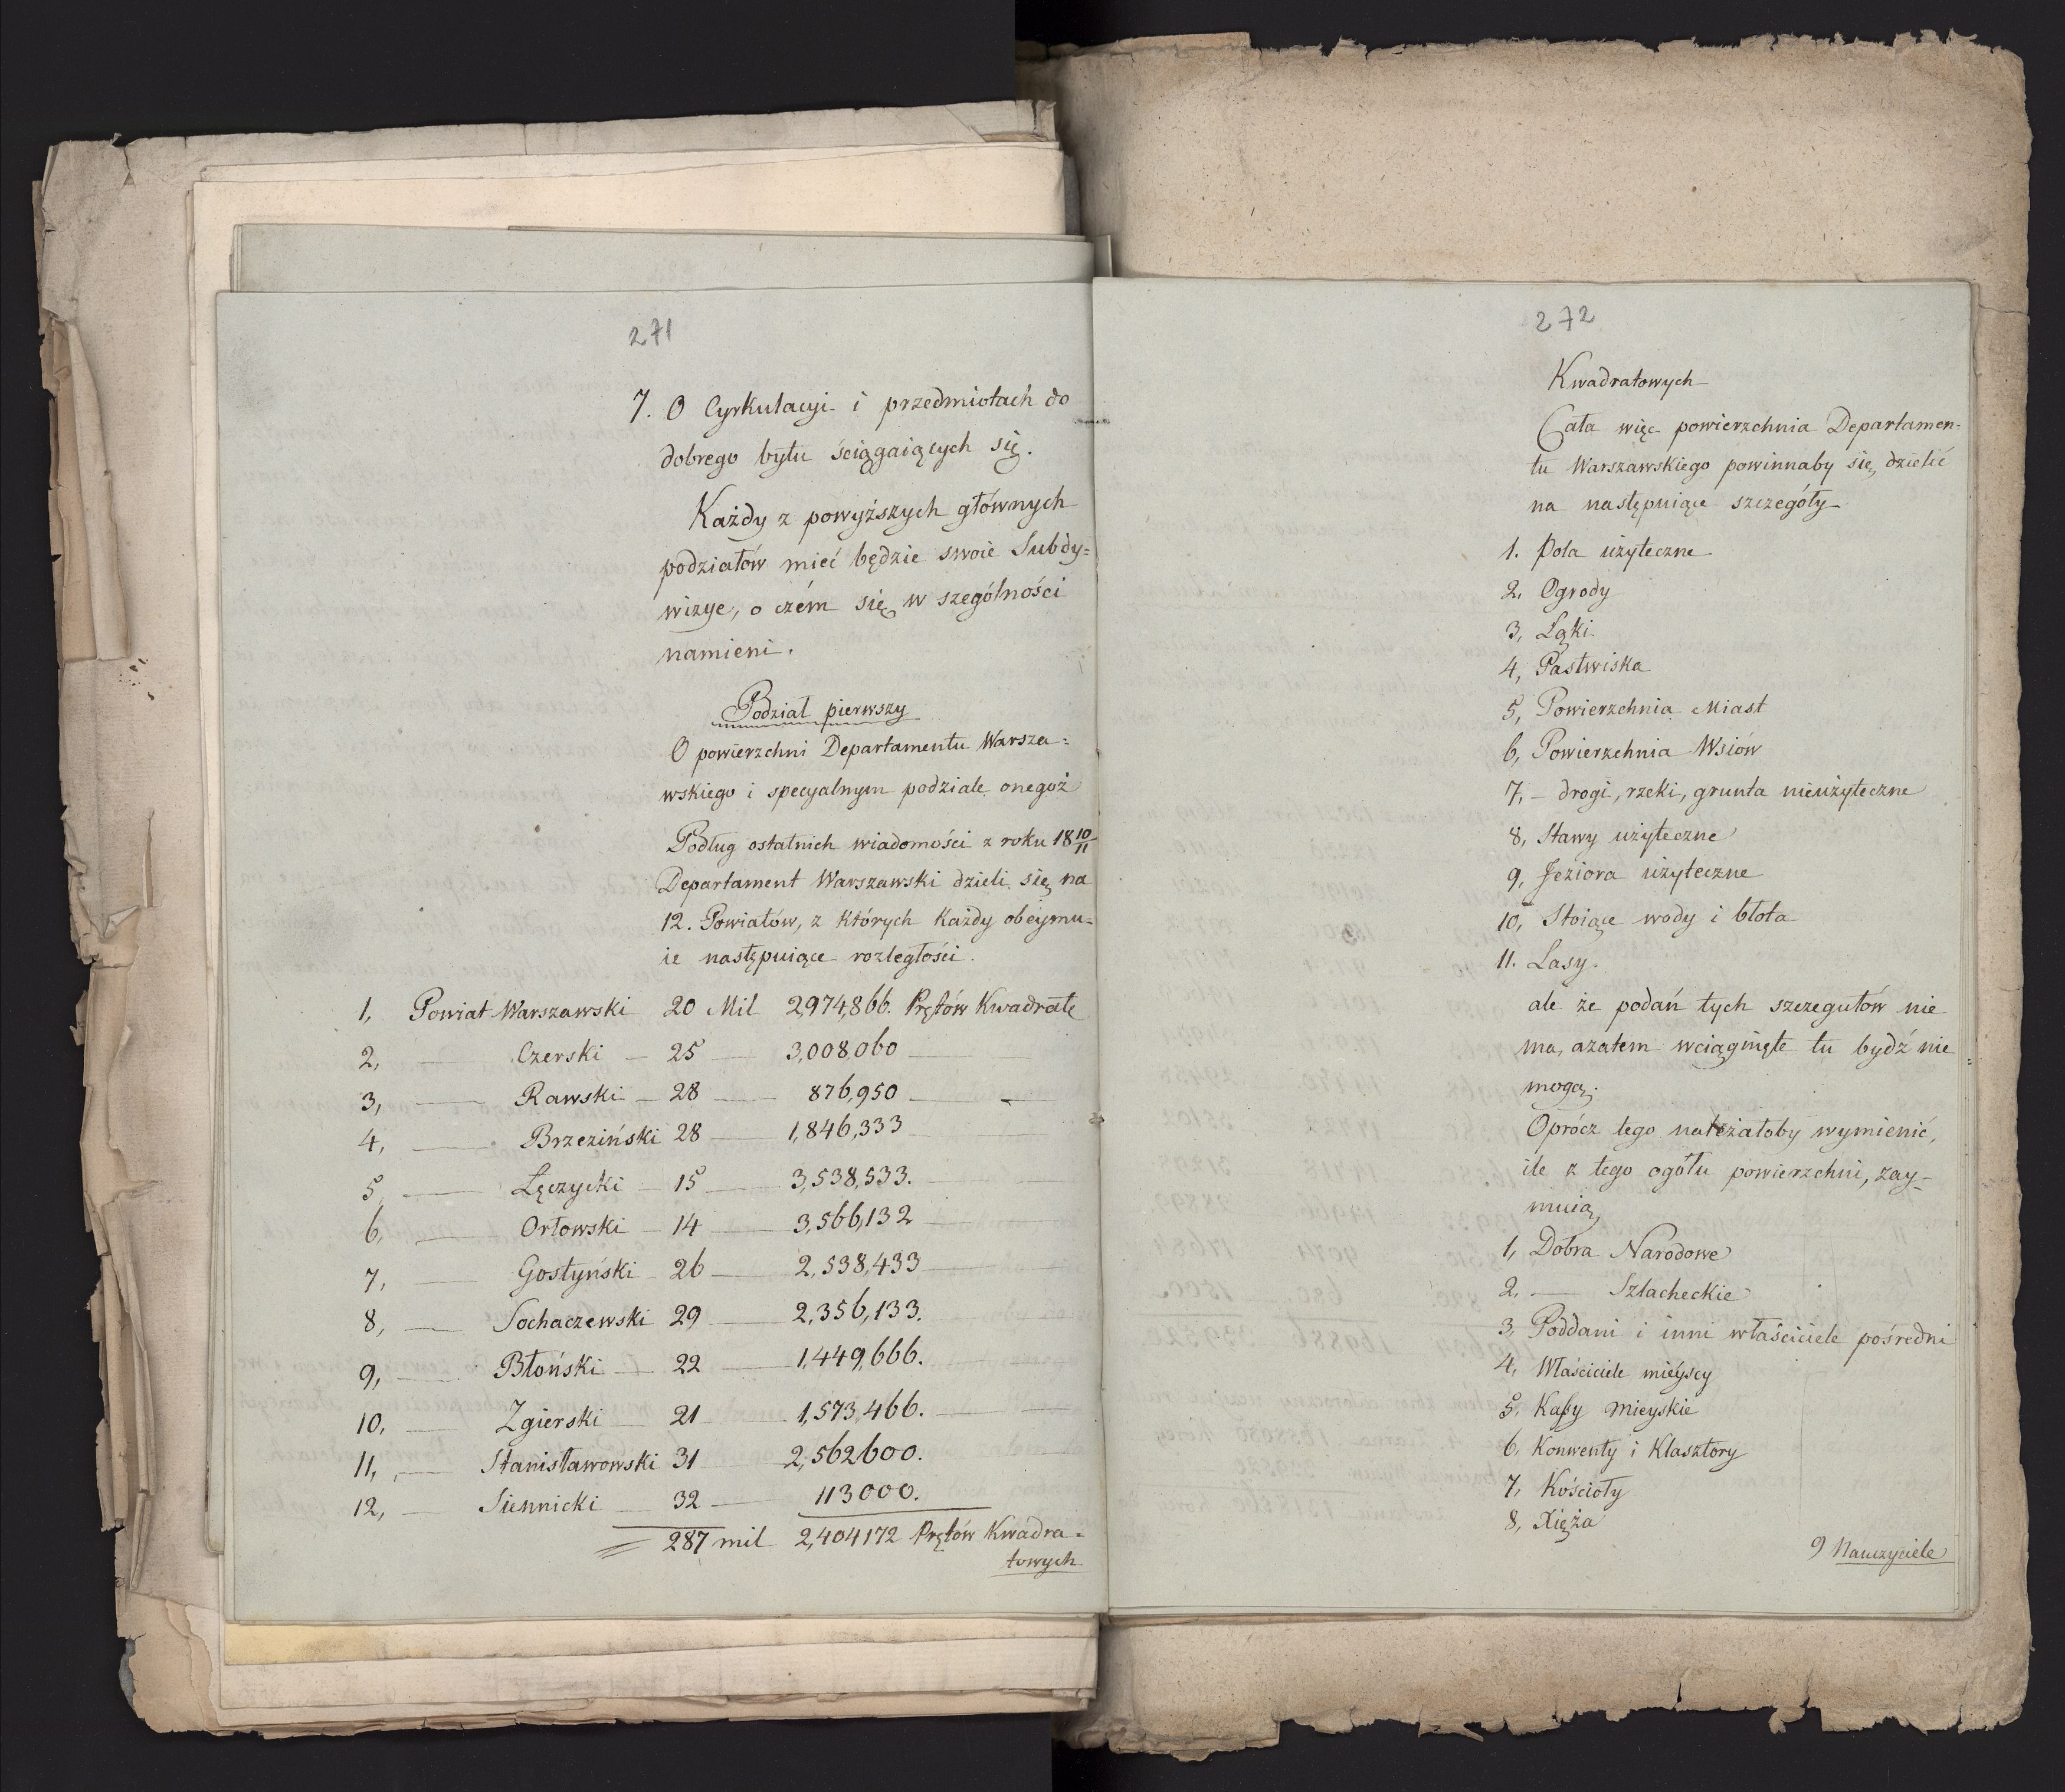 271
7. O Cyrkulacyi i przedmiotach do
dobrego bytu ściągaiących się.
Każdy z powyższych głównych
podziałów mieć będzie swoie Subdy=
wizye, o czém się w szególności
namieni.
Podział pierwszy
O powierzchni Departamentu Warsza=
wskiego i specyalnym podziale onegoż
Podług ostatnich wiadomości z roku 18 10/11
Departament Warszawski dzieli się na
12. Powiatów, z których każdy obeymu=
ie następuiące rozległości.
1, Powiat Warszawski 20 Mil 2,974,866. Prętów Kwadrato
2, — Czerski — 25 — 3,008,060 —
3, — Rawski — 28 — 876,950 —
4, — Brzeziński 28 — 1,846,333 —
5, — Łęczycki — 15 — 3,538,533. —
6, — Orłowski — 14 — 3,566,132 —
7, — Gostyński — 26 — 2,538,433 —
8, — Sochaczewski 29 — 2,356,133.
9, — Błoński — 22 — 1,449,666.
10, — Zgierski — 21 — 1,573,466. —
11, — Stanisławowski 31 — 2,562600.
12, — Siennicki — 32 — 113000.
287 mil 2,404172 Prętów Kwadra=
towych
272
Kwadratowych
Cała więc powierzchnia Departamen=
tu Warszawskiego powinnaby się dzielić
na następuiące szczegóły
1. Pola użyteczne
2, Ogrody
3, Łąki
4, Pastwiska
5, Powierzchnia Miast
6, Powierzchnia Wsiów
7, – drogi, rzeki, grunta nieużyteczne
8, Stawy użyteczne
9, Jeziora użyteczne
10, Stoiące wody i błota
11. Lasy.
ale że podań tych szczegułów nie
ma, azatem wciągnięte tu bydź nie
mogą.
Oprócz tego należałoby wymienić,
ile z tego ogółu powierzchni, zay=
muią
1, Dobra Narodowe
2, — Szlacheckie
3, Poddani i inni właściciele pośredni
4, Właściciele mieyscy
5, Kassy Mieyskie
6, Konwenty i Klasztory
7, Kościoły
8, Xięża
9 Nauczyciele